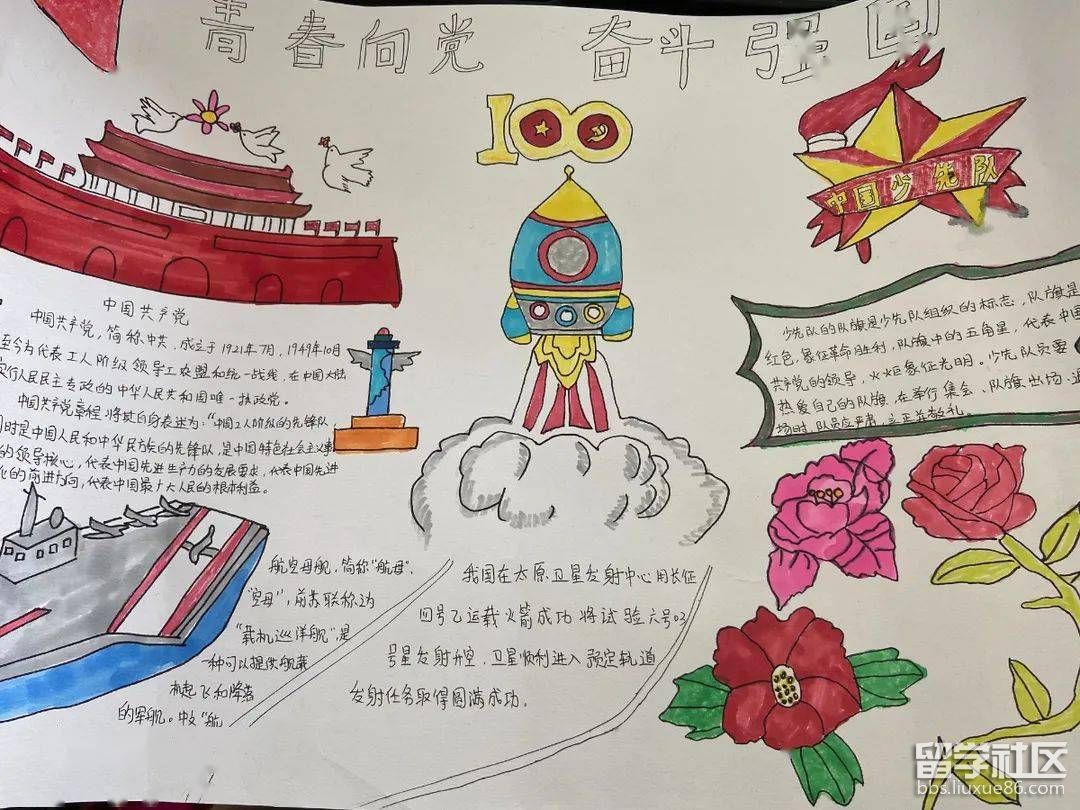 青春向党 奋斗强国
100
中国少先队
中国共产党
中国共产党，简称中共，成立于1921年7月，1949年10月
至今为代表工人阶级领导工农联盟和统一战线，在中国大陆
实行人民民主专政的中华人民共和国唯一执政党。
中国共产党章程将其自身表述为：“中国工人阶级的先锋队，
同时是中国人民和中华民族的先锋队，是中国特色社会主义事
的领导核心，代表中国先进生产力的发展要求，代表中国先进
化的前进方向，代表中国最广大人民的根本利益。
少先队的队旗是少先队组织的标志，队旗是
红色，象征革命胜利，队旗中的五角星，代表中国
共产党的领导，火炬象征光明。少先队员要
热爱自己的队旗，在举行集会、队旗出场、退
场时，队员应严肃，立正并敬礼。
航空母舰，简称“航母”、
“空母”，前苏联称之为
“载机巡洋舰”，是
一种可以提供舰载
机起飞和降落
的军舰。中文“航
我国在太原卫星发射中心用长征
四号乙运载火箭成功将试验六号03
号星发射升空，卫星顺利进入预定轨道
发射任务取得圆满成功.
留学社区
bbs.liuxue86.com